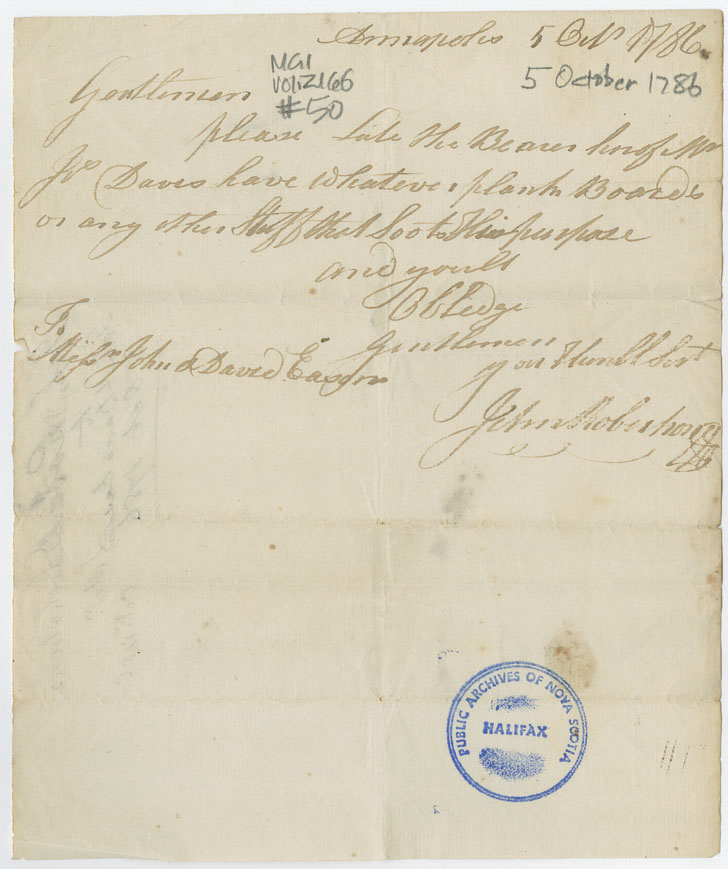 Annapolis 5 Octr 1786
MG1
Vol. 2166
#50
5 October 1786
Gentlemen
please Late the Bearer
Jos Daves have Whatever plank Boards
or any other Stuff that Soots His purpose
and youll
Obledge
Gentlemen
your Humbl Sert
To
Messrs John & David Eason
John Robertson
PUBLIC ARCHIVES OF NOVA SCOTIA
HALIFAX